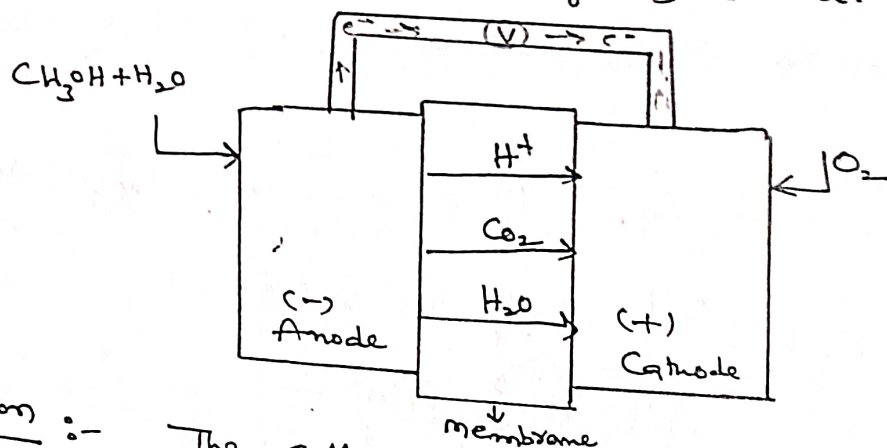 e⁻ (V) → e⁻
CH₃OH + H₂O
H⁺
O₂
CO₂
H₂O
(-)
Anode
(+)
Cathode
membrane
on :- The